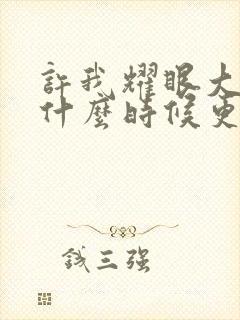 許我耀眼大
什麼時候更
錢三強